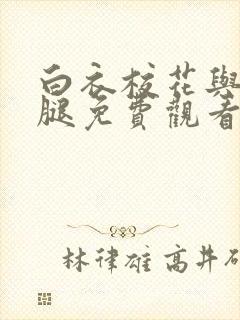 白衣校花與
腿免費觀看
林律雄 高井研